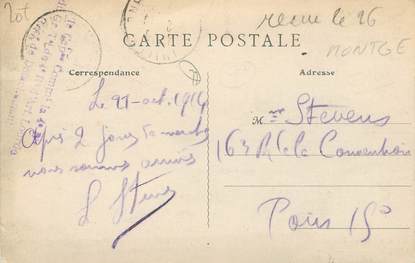 20f
recue le 26
MONTGE
CARTE POSTALE
Correspondance
Adresse
Le 21 oct. 1914
Après 2 jours de marche
nous sommes arrivés
L Stevens
Mme Stevens
163 R de la Convention
Paris 15e